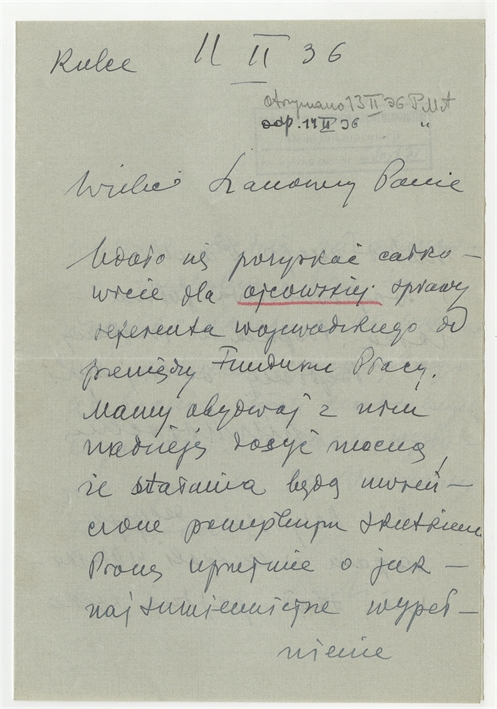 Kielce 11 II 36
Otrzymano 13 II 36 PMA
odp. 14 II 36 "
Wielce Szanowny Panie
Udało się pozyskać całko-
wicie dla ojcowskiej sprawy
referenta wojewódzkiego od
pieniędzy Funduszu Pracy.
Mamy obydwaj z nim
nadzieję dosyć mocną,
że starania będą uwień-
czone pomyślnym skutkiem
Proszę uprzejmie o jak-
najsumienniejsze wypeł-
nienie